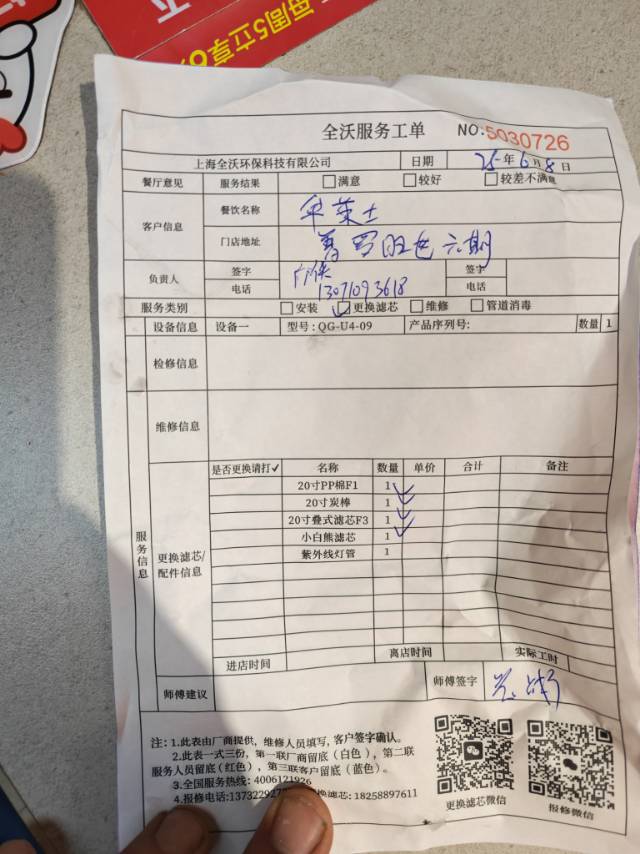 每周5立享6
全沃服务工单 NO:5030726
上海全沃环保科技有限公司 日期 25年6月8日
餐厅意见 服务结果 □满意 □较好 □较差不满意
客户信息 餐饮名称 华莱士
门店地址 普罗旺世六期
负责人 签字 签字
电话 13071093618 电话
服务类别 □安装 □更换滤芯 □维修 □管道消毒
设备信息 设备一 型号:QG-U4-09 产品序列号: 数量 1
检修信息
维修信息
服务信息
更换滤芯/配件信息
是否更换请打✓ 名称 数量 单价 合计 备注
20寸PP棉F1 1 ✓
20寸炭棒 1 ✓
20寸叠式滤芯F3 1 ✓
小白熊滤芯 1 ✓
紫外线灯管 1
进店时间 离店时间 实际工时
师傅建议 师傅签字
注:1.此表由厂商提供，维修人员填写, 客户签字确认。
2.此表一式三份，第一联厂商留底（白色），第二联
服务人员留底(红色)，第三联客户留底（蓝色）。
3.全国服务热线: 4006171926
4.报修电话:137322927 换滤芯: 18258897611
更换滤芯微信
报修微信